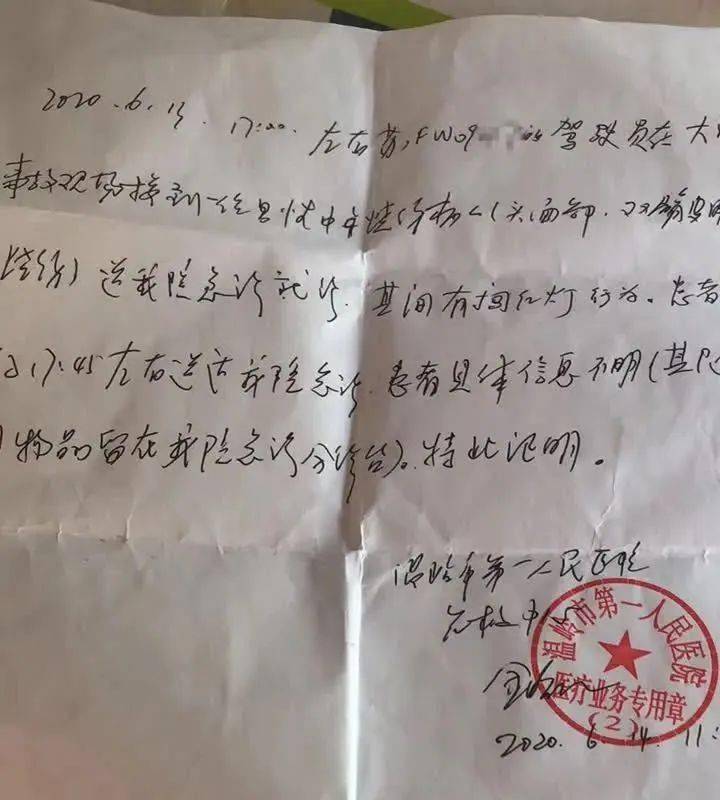 2020.6.13. 17:00. 左右苏FW09 的驾驶员在大
事故现场接到一位 中 烧伤病人(头面部、双
烧伤)送我院急诊就诊.其间有闯红灯行为。患者
17:45左右送达我院急诊.患者具体信息不明(其
物品留在我院急诊分诊台)。特此证明。
温岭市第一人民医院
急救中心
2020. 6. 14. 11:
温岭市第一人民医院
医疗业务专用章
(2)